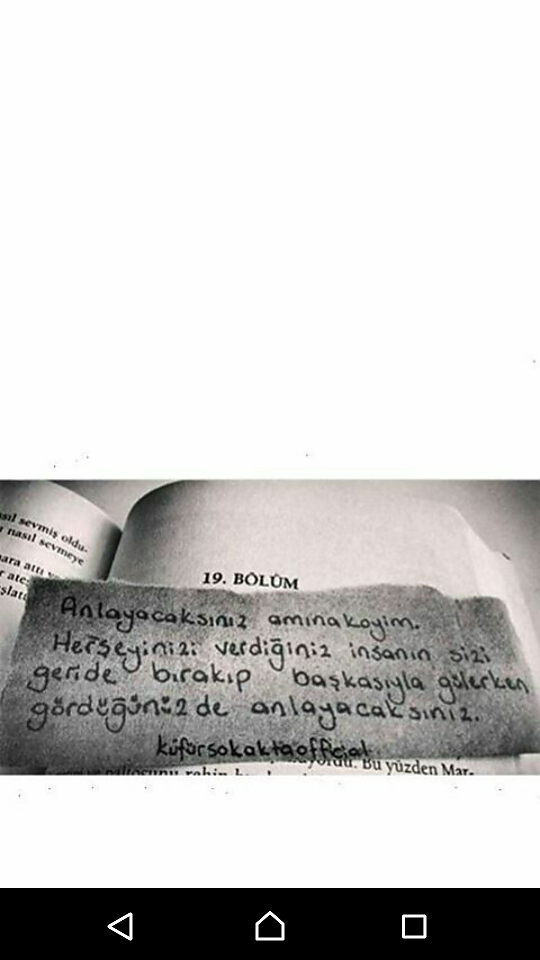 ısıl sevmiş oldu-
nasıl sevmeye
ara attı
r ate
19. BÖLÜM
Anlayacaksınız amınakoyim.
Herşeyinizi verdiğiniz insanın sizi
geride bırakıp başkasıyla gülerken
gördüğünüzde anlayacaksınız.
küfürsokaktaofficial
Bu yüzden Mar-